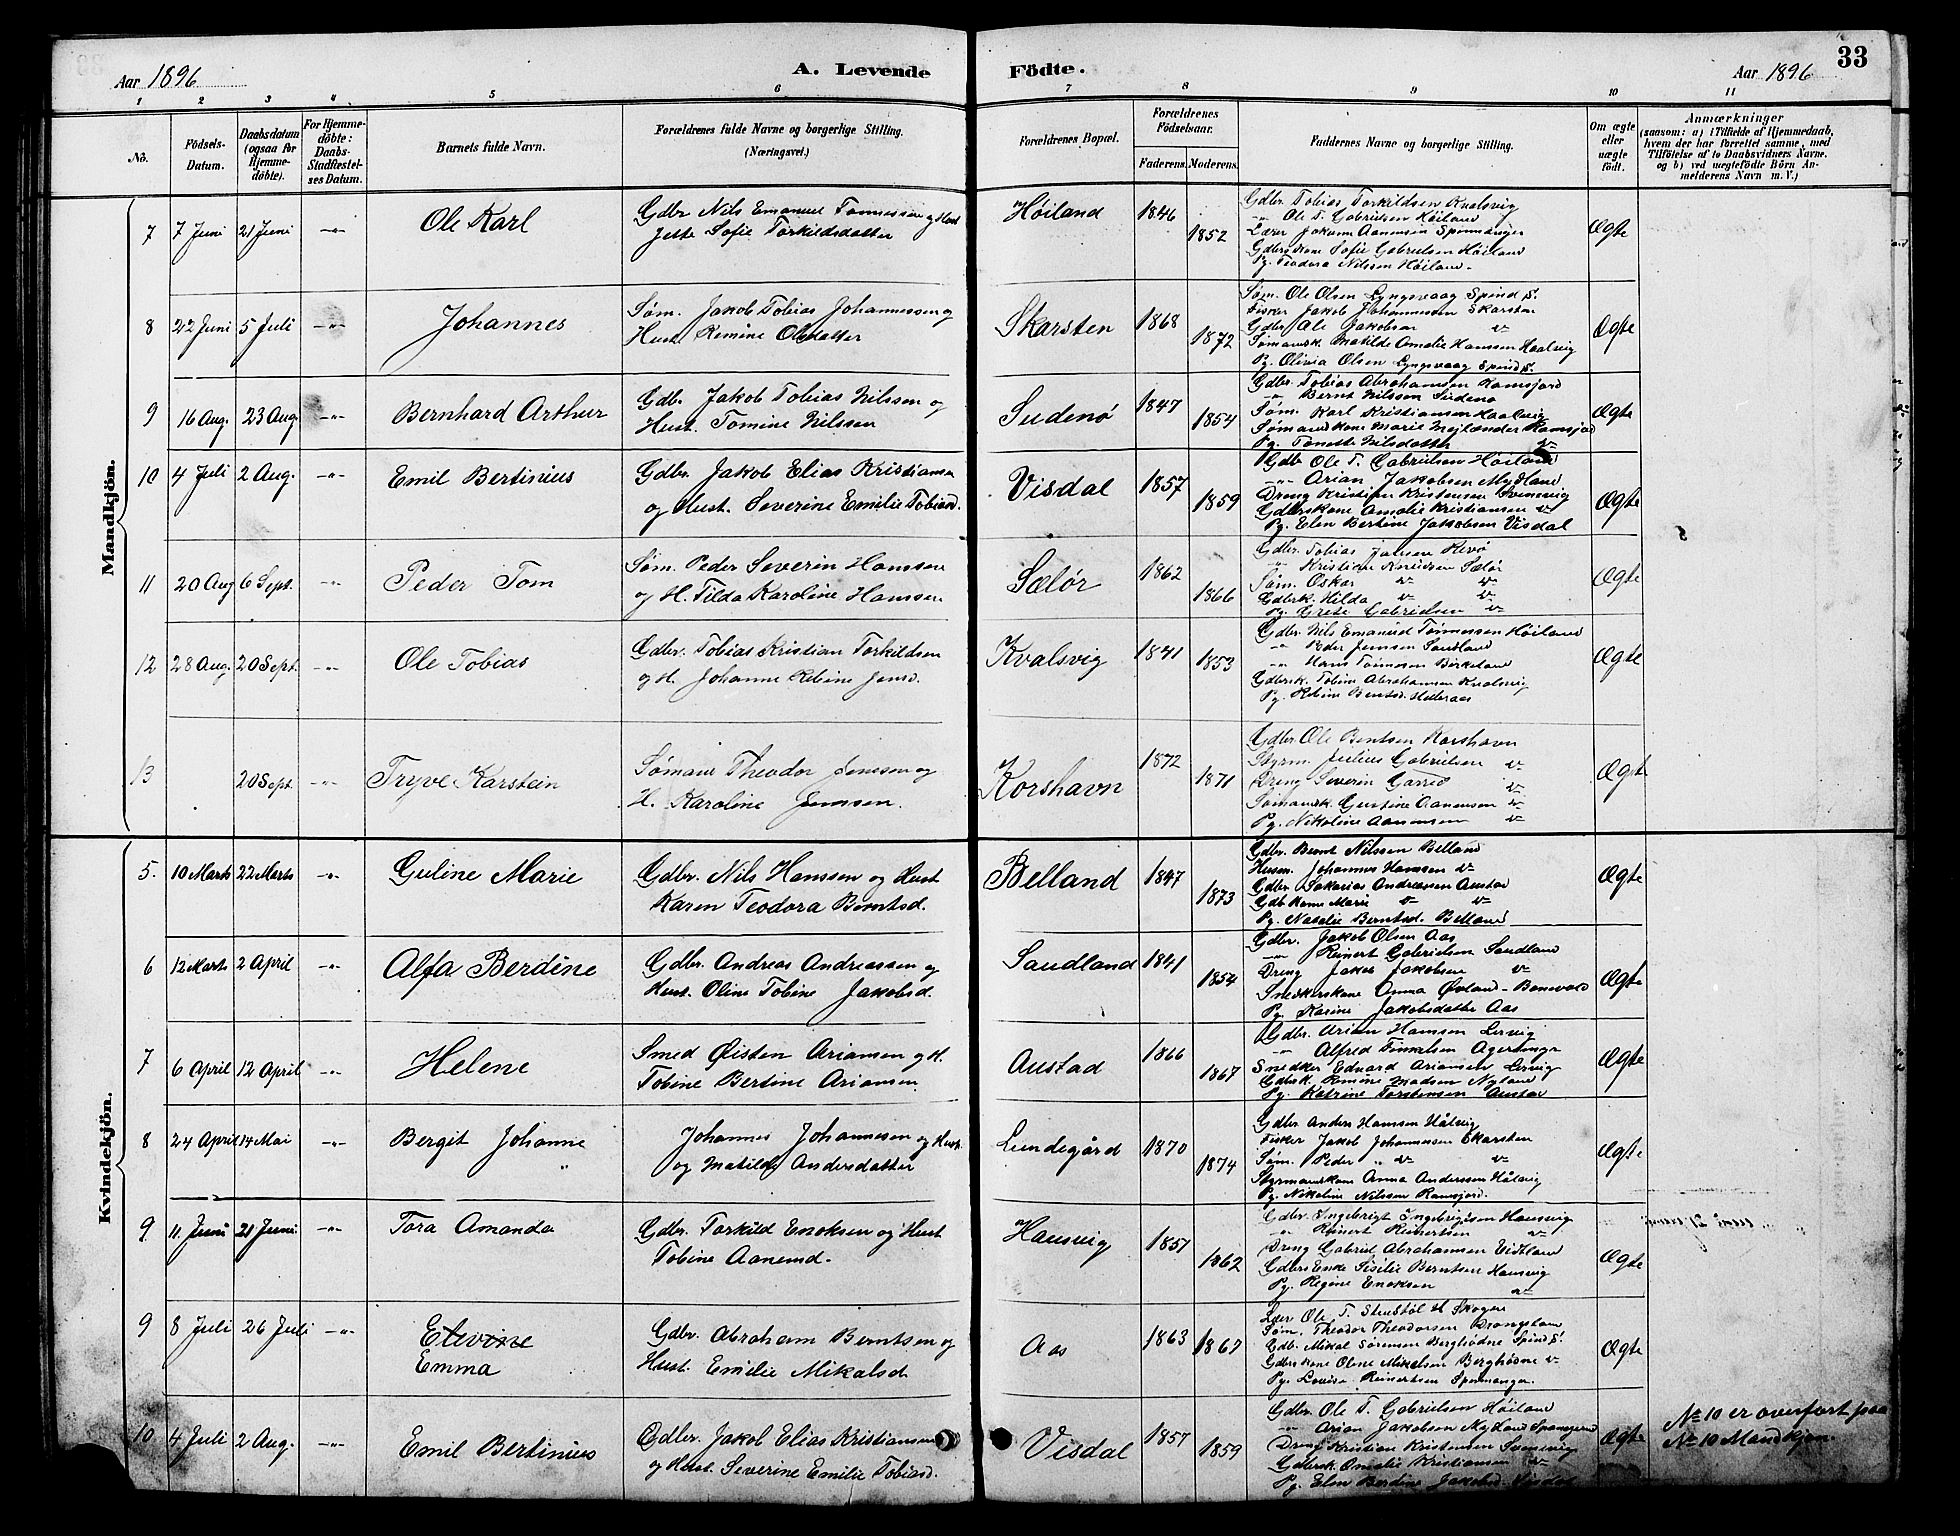 Aar 1896
A. Levende
Födte.
Aar 1896
33
1 2 3 4 5 6 7 8 9 10 11
No.
Födsels-Datum.
Daabsdatum (ogsaa for Hjemme-döbte).
For Hjemme-döbte: Daabs-Stadfæstel-ses Datum.
Barnets fulde Navn.
Forældrenes fulde Navne og borgerlige Stilling. (Næringsvei.)
Forældrenes Bopæl.
Forældrenes Födselsaar.
Faderens. Moderens.
Faddernes Navne og borgerlige Stilling.
Om ægte eller uægte födt.
Anmærkninger
(saasom: a) i Tilfælde af Hjemmedaab, hvem der har forrettet samme, med Tilföielse af to Daabsvidners Navne. og b) ved uægtefödte Börn An-melderens Navn m. V.)
Mandkjön.
7 7 Juni 21 Juni -"- Ole Karl
Gdbr. Nils Emanuel Tønnessen og Hust
Jette Sofie Torkildsdatter
Høiland 1846 1852
Gdbr. Tobias Torkildsen Kvalsvig
-"- Ole T. Gabrielsen Høiland
Gdbrskone Sofie Gabrielsen Høiland
Pg. Teodora Nilssen Høiland.
Ægte
8 22 Juni 5 Juli -"- Johannes
Søm. Jakob Tobias Johannessen og
Hust. Remine Olsdatter
Skarsten 1868 1872
Søm. Ole Olsen Lyngsvaag Spind S.
Fisker Jakob Johannessen Skarsten
Gdbr. Ole Jakobsen
Sømansk. Matilde Amalie Hanssen Haalvig
Pg. Olivia Olsen Lyngsvaag Spind S.
Ægte
9 16 Aug. 23 Aug. -"- Bernhard Arthur
Gdb. Jakob Tobias Nilssen og
Hust. Tomine Nilssen
Sudenø 1847 1854
Gdbr. Tobias Abrahamsen Ramsjord
-"- Bernt Nilssen Sudenø
Søm. Karl Kristiansen Haalvig
Sømandskone Marie Mejlænder Ramsjord
Pg. Tonette Nilsdatter
Ægte
10 4 Juli 2 Aug. -"- Emil Bertinius
Gdbr. Jakob Elias Kristiansen
og Hust. Severine Emilie Tobiasd.
Visdal 1857 1859
Gdb. Ole T. Gabrielsen Høiland
-"- Arian Jakobsen Mydland
Dreng Kristian Kristensen Svennevig
Gdbrskone Amalie Kristiansen
Pg. Elen Bertine Jakobsen Visdal
Ægte
11 20 Aug 6 Sept. -"- Peder Tom
Søm. Peder Severin Hanssen
og H. Tilda Karoline Hanssen
Sælør 1862 1866
Gdbr. Tobias Jansen Revø
Kristian Knudsen Sælør
Søm. Oskar
Gdbrk. Hilda
Pg. Grete Gabrielsen
Ægte
12 28 Aug. 20 Sept. -"- Ole Tobias
Gdbr. Tobias Kristian Torkildsen
og H. Johanne Rebine Jensd.
Kvalsvig 1841 1853
Gdbr. Nils Emanuel Tønnessen Høiland
-"- Peder Jenssen Sandland
-"- Hans Tønnessen Birkeland
Gdbrsk. Tobine Abrahamsen Kvalsvig
Pg. Rebine Berntsd. Helleraas
Ægte
13 20 Sept. -"- Tryve Karstein
Sømand Theodor Jenssen og
H. Karoline Jenssen.
Korshavn 1872 1871
Gdbr. Ole Bentsen Korshavn
Styrm. Julius Gabrielsen
Dreng Severin Garred
Sømandsk. Gustine Aanensen
Pg. Nikoline Aanonsen
Ægte
Kvindekjön.
5. 10 Marts 22 Marts -"- Guline Marie
Gdbr. Nils Hanssen og Hust
Karen Teodora Berntsd.
Belland 1847 1873
Gdbr. Bernt Nilssen Belland
Husm. Johannes Hanssen
Gdbr. Sakarias Andreassen Austad
Gdb. kone Marie
Pg. Natalie Berntsd. Belland
Ægte
6 12 Marts 2 April -"- Alfa Berdine
Gdbr. Andreas Andreassen og
Hust. Oline Tobine Jakobsd.
Sandland 1841 1854
Gdbr. Jakob Olsen Aas
-"- Reinert Gabrielsen Sandland
Dreng Jakob Jakobsen
Snedkerskone Anna Øvland
Pg. Karine Jakobsdatter Aas
Ægte
7 6 April 12 April -"- Helene
Smed Øisten Ariansen og H.
Tobine Bertine Ariansen
Austad 1866 1867
Gdbr. Arian Hanssen Lervig
-"- Alfred Tinkelsen
Snedker Edvard Ariansen Lervig
Gdbrsk. Remine Madsen Nyland
Pg. Katrine Torstensen Austad
Ægte
8 24 April 14 Mai -"- Bergit Johanne
Johannes Johannesen og Hust.
og Matilde Andersdatter
Lundegård 1870 1874
Gdbr. Anders Hanssen Hålvig
Fisker Jakob Johannessen Skarsten
Søm. Peder
Styrmandskone Anna Anderssen Hålvig
Pg. Nikoline Nilssen Ramsjord.
Ægte
9 11 Juni 21 Juni -"- Tora Amanda
Gdbr. Torkild Enoksen og Hust
Tobine Aanensd.
Hansvig 1857 1862
Gdbr. Ingebrigt Ingebrigtsen Hansvig
-"- Reinert Reinertsen
Dreng Gabriel Abrahamsen Vidtland
Gdbrs Enke Sisilie Berntsen Hansvig
Pg. Regine Enoksen
Ægte
9 8 Juli 26 Juli -"- Elevine
Emma
Gdbr. Abraham Berntsen og
Hust. Emilie Mikalsd
Aas 1863 1867
Søm. Theodor Theodorsen
Gdb. Mikal Sørensen Berghødne Spind S.
Gdbrskone Oline Mikelsen Berghødne
Pg. Lovise Reinertsen
Ægte
10 4 Juli 2 Aug. -"- Emil Bertinius
Gdbr. Jakob Elias Kristiansen
og Hust. Severine Emilie Tobiasd.
Visdal 1857 1859
Gdbr. Ole T. Gabrielsen Høiland
-"- Arian Jakobsen Mydland
Dreng Kristian Kristensen Svennevig
Gdbrsk. Amalie Kristiansen
Pg. Elen Berdine Jakobsd. Visdal
Ægte
No 10 er overført paa
No 10 Mandkjøn.